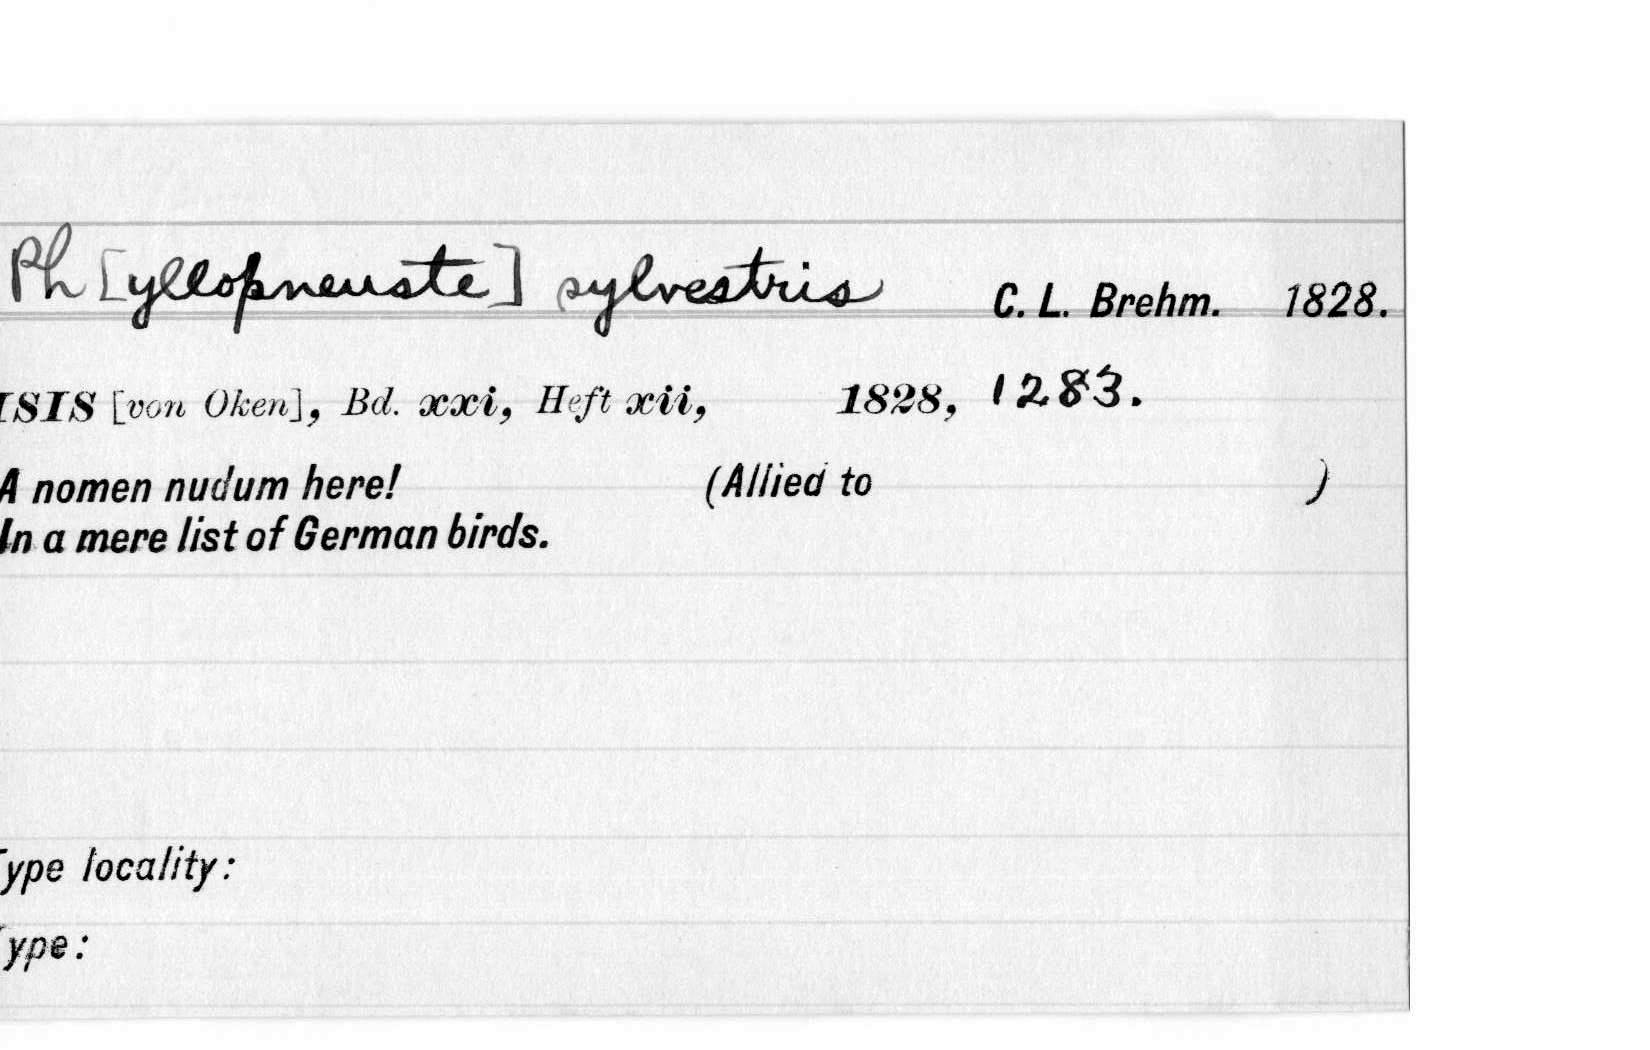 Ph[yllopneuste] sylvestris C. L. Brehm. 1828.
ISIS [von Oken], Bd. xxi, Heft xii, 1828, 1283.
A nomen nudum here! (Allied to )
In a mere list of German birds.
Type locality:
Type: